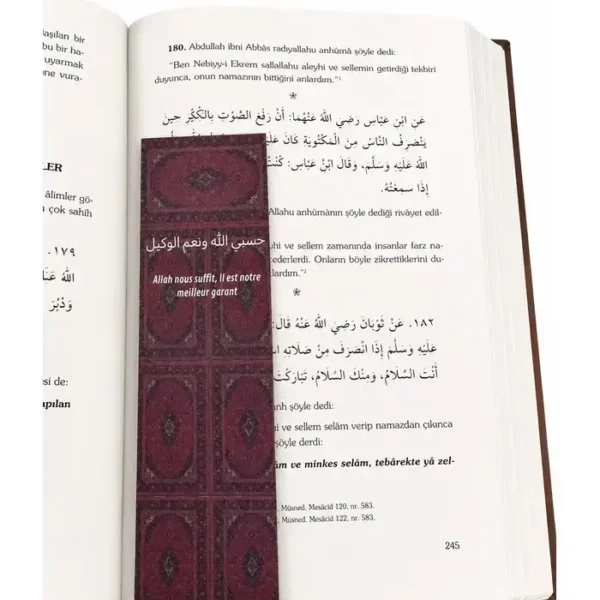 aşılan bir
bu bir ha-
uyarmak
ne vura-
LER
âlimler gö-
çok sahih
١٧٩.
اللهُ عَنْ
وَدُبُرَ
si de:
apılan
180. Abdullah ibni Abbâs radıyallahu anhümâ şöyle dedi:
“Ben Nebiyy-i Ekrem sallallahu aleyhi ve sellemin getirdiği tekbiri
duyunca, onun namazının bittiğini anlardım.”¹
*
عَنِ ابْنِ عَبَّاسٍ رَضِيَ اللهُ عَنْهُمَا: أَنَّ رَفْعَ الصَّوْتِ بِالذِّكْرِ حِينَ
يَنْصَرِفُ النَّاسُ مِنَ الْمَكْتُوبَةِ كَانَ عَلَى
اللهُ عَلَيْهِ وَسَلَّمَ، وَقَالَ ابْنُ عَبَّاسٍ: كُنْتُ
إِذَا سَمِعْتُهُ.
Allahu anhümânın şöyle dediği rivâyet edil-
hi ve sellem zamanında insanlar farz na-
ederlerdi. Onların böyle zikrettiklerini du-
lardım.”²
*
١٨٢. عَنْ ثَوْبَانَ رَضِيَ اللهُ عَنْهُ قَالَ:
عَلَيْهِ وَسَلَّمَ إِذَا انْصَرَفَ مِنْ صَلَاتِهِ
أَنْتَ السَّلَامُ، وَمِنْكَ السَّلَامُ، تَبَارَكْتَ
anh şöyle dedi:
hi ve sellem selâm verip namazdan çıkınca
şöyle derdi:
âm ve minkes selâm, tebârekte yâ zel-
Müsned, Mesâcid 120, nr. 583.
Müsned, Mesâcid 122, nr. 583.
245
حسبي الله ونعم الوكيل
Allah nous suffit, Il est notre
meilleur garant